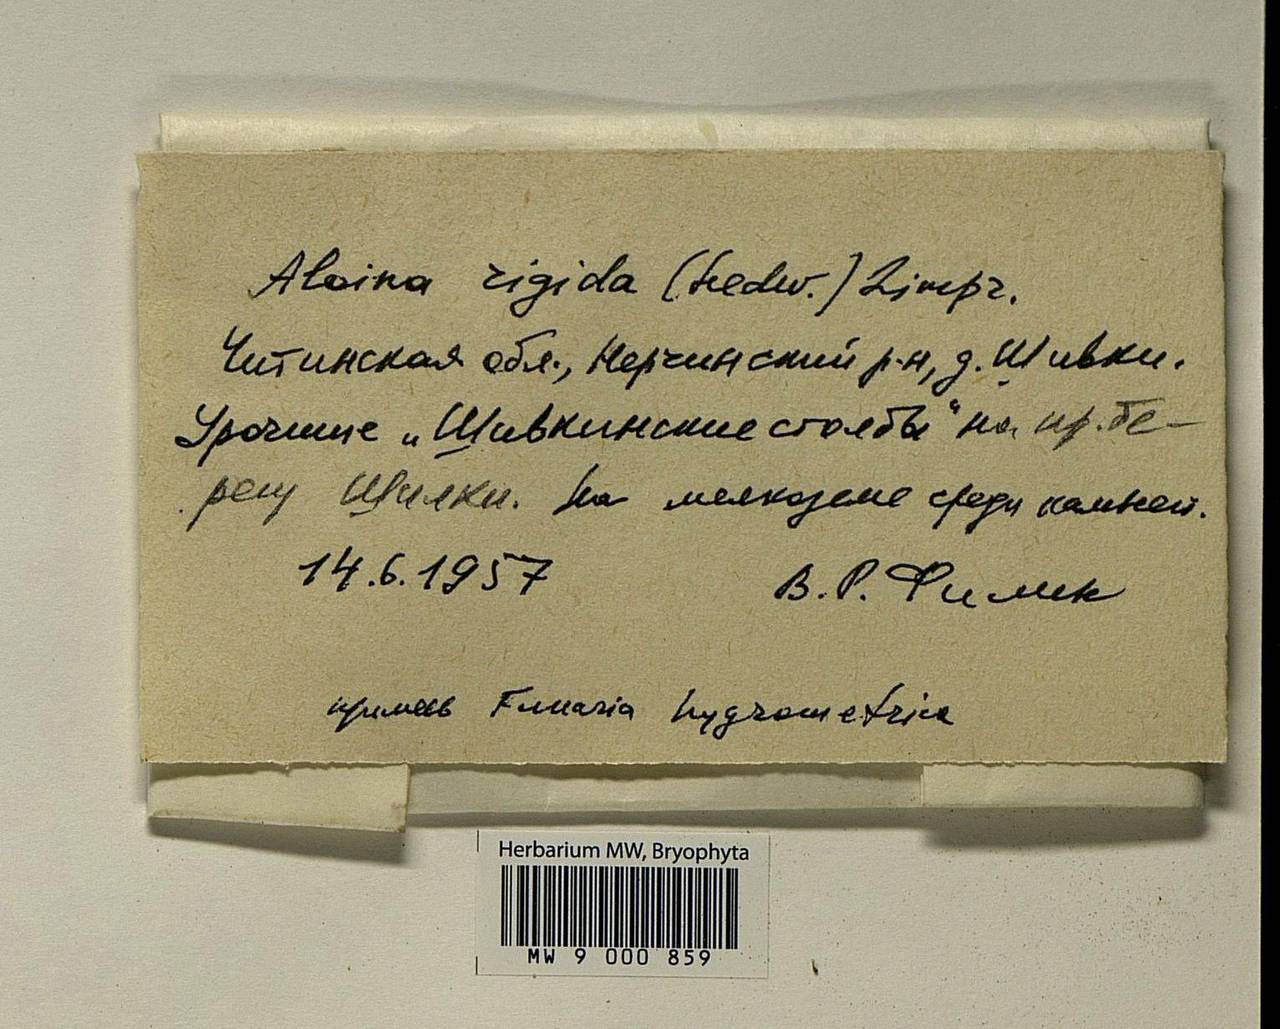 Aloina rigida (Hedw.) Limpr.
Читинская обл., Нерчинский р-н, д. Шивки.
Урочище „Шивкинские столбы“ на пр. бе-
регу Шилки. На мелкоземе среди камней.
14.6.1957 В. Р. Филик
примесь Funaria hygrometrica
Herbarium MW, Bryophyta
MW 9 000 859